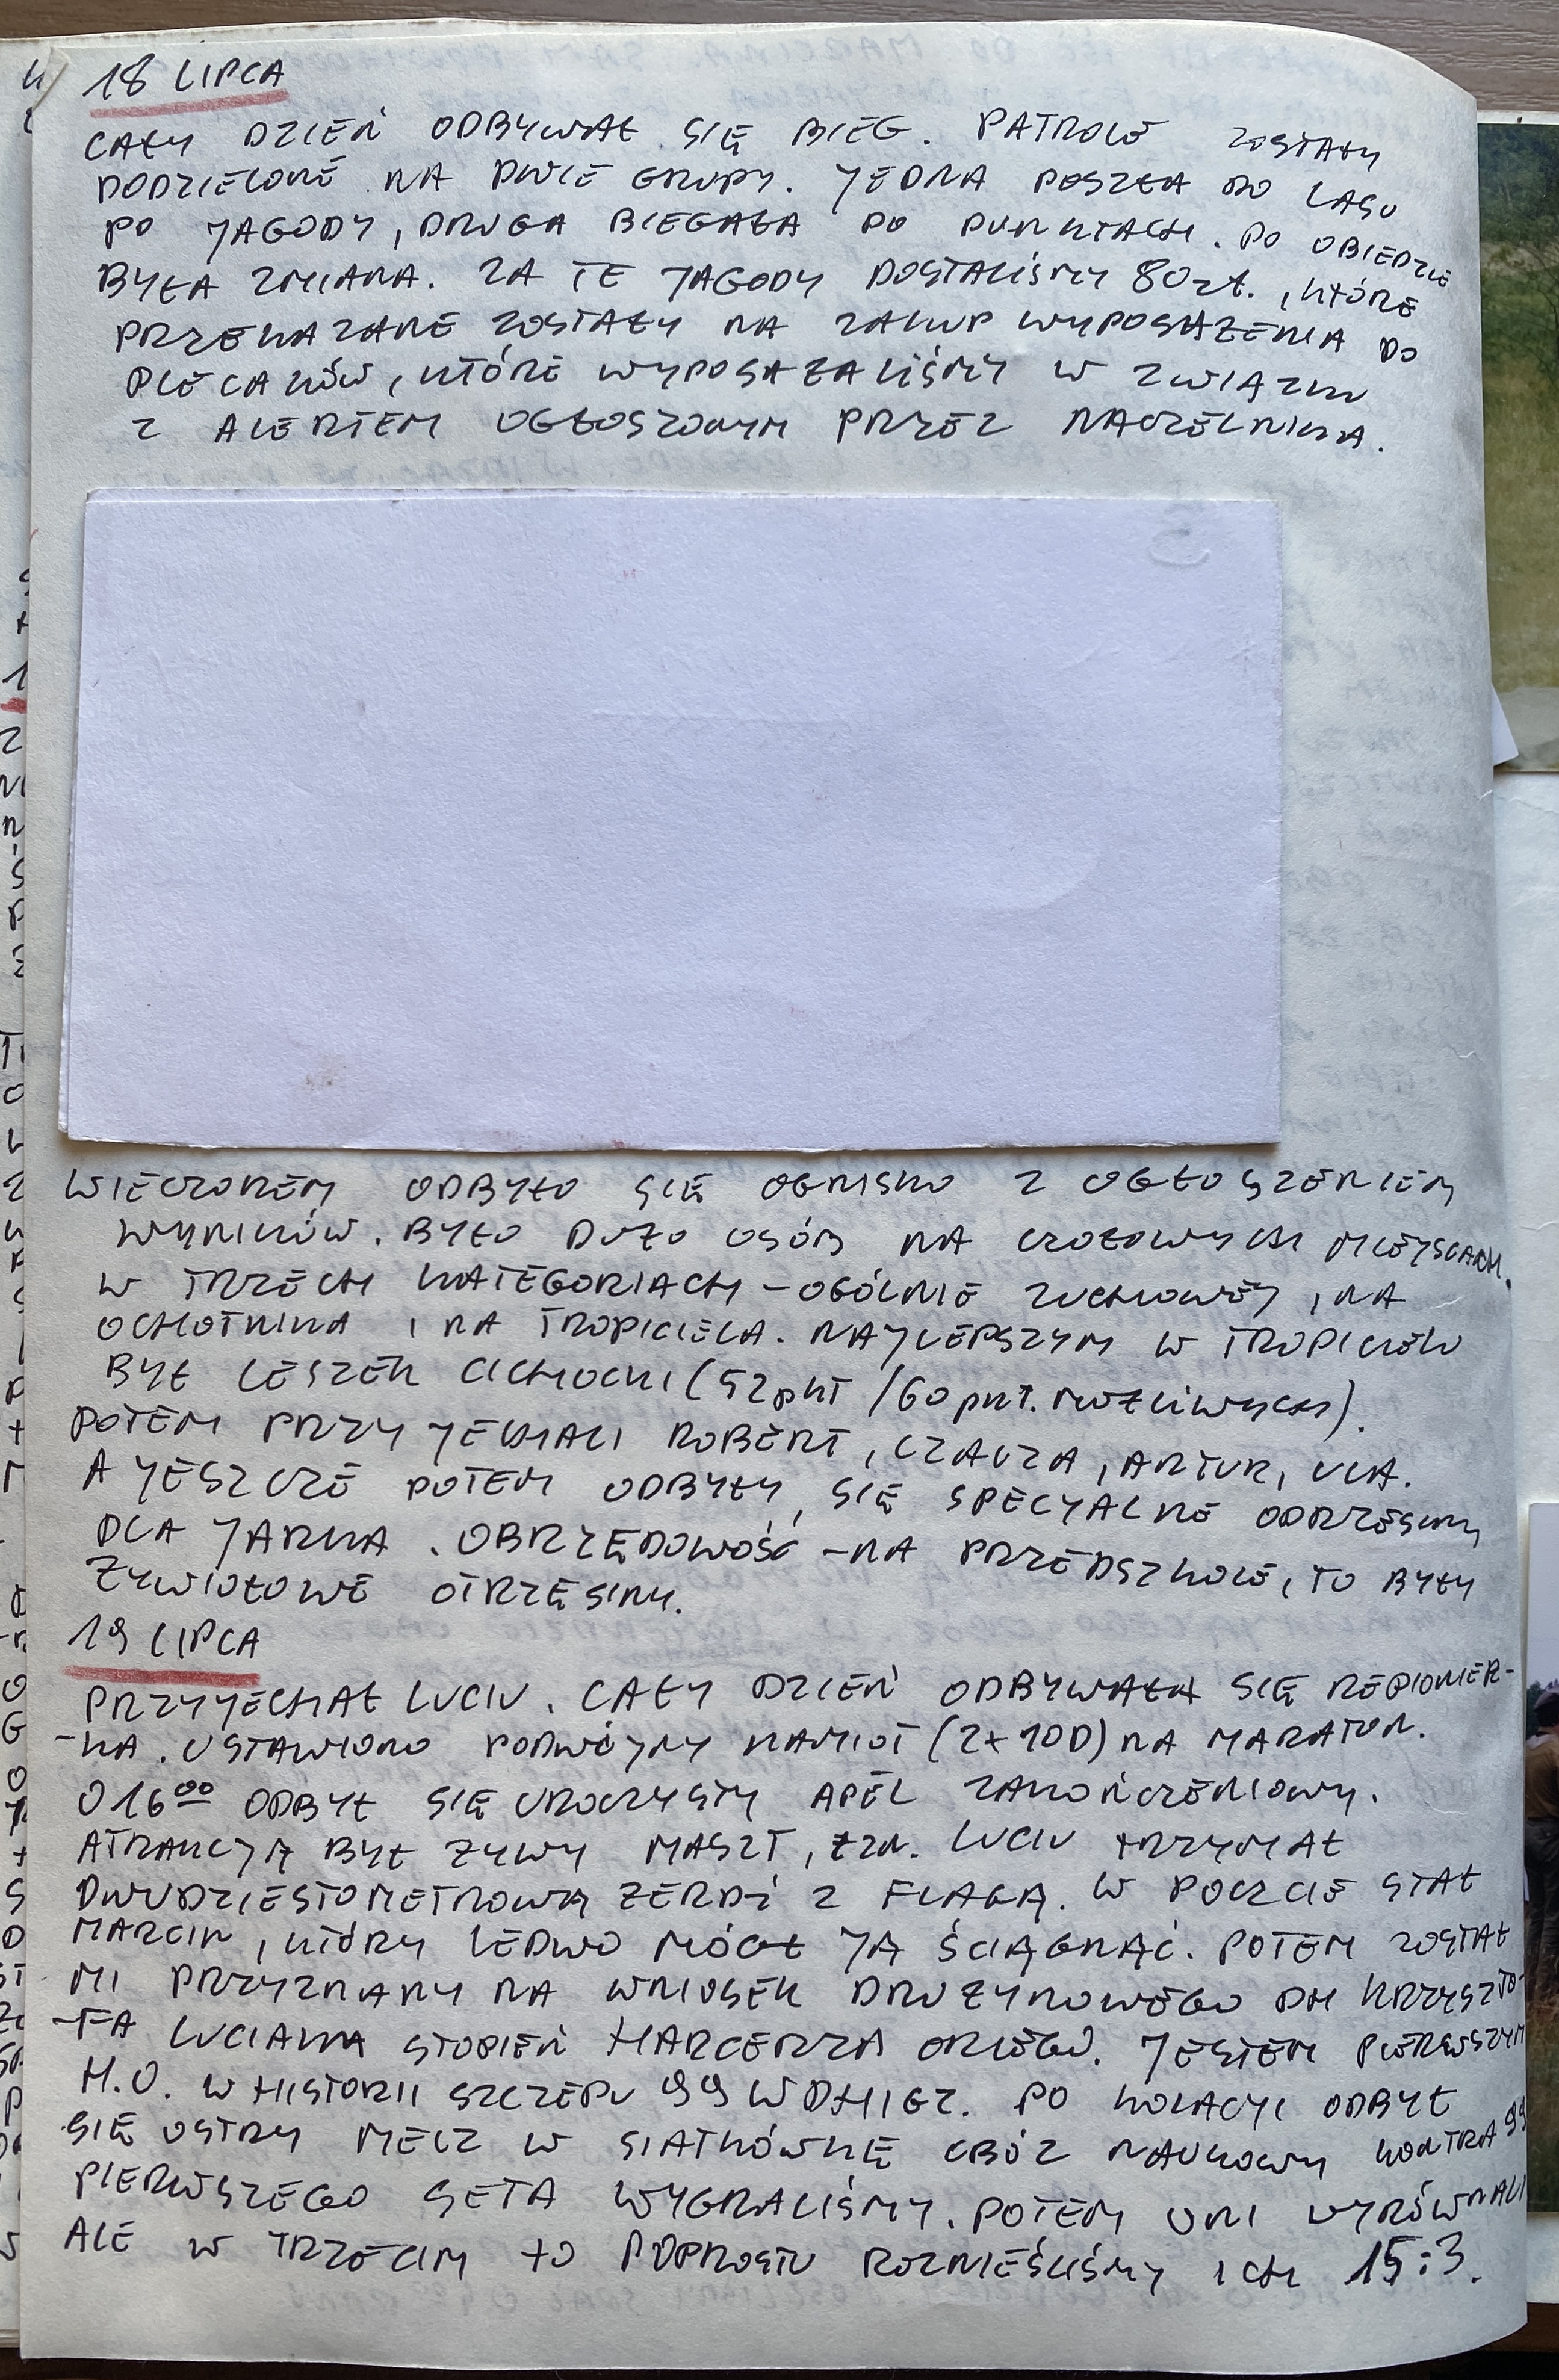 18 LIPCA
CAŁY DZIEŃ ODBYWAŁ SIĘ BIEG. PATROLE ZOSTAŁY
PODZIELONE NA DWIE GRUPY. JEDNA POSZŁA DO LASU
PO JAGODY, DRUGA BIEGAŁA PO PUNKTACH. PO OBIEDZIE
BYŁA ZMIANA. ZA TE JAGODY DOSTALIŚMY 80 zł., KTÓRE
PRZEKAZANE ZOSTAŁY NA ZAKUP WYPOSAŻENIA DO
PLECAKÓW, KTÓRE WYPOSAŻALIŚMY W ZWIĄZKU
Z ALERTEM OGŁOSZONYM PRZEZ NACZELNIKA.
WIECZOREM ODBYŁO SIĘ OGNISKO Z OGŁOSZENIEM
WYNIKÓW. BYŁO DUŻO OSÓB NA CZOŁOWYCH MIEJSCACH.
W TRZECH KATEGORIACH - OGÓLNIE ZUCHOWEJ, NA
OCHOTNIKA I NA TROPICIELA. NAJLEPSZYM W TROPICIELU
BYŁ LESZEK CICHOCKI (52 pkt / 60 pkt. MOŻLIWYCH).
POTEM PRZYJECHALI ROBERT, CZACZA, ARTUR, ULA.
A JESZCZE POTEM ODBYŁY SIĘ SPECJALNE ODRZĘSINY
DLA JARKA. OBRZĘDOWOŚĆ - NA PRZEDSZKOLE, TO BYŁY
ŻYWIOŁOWE OTRZĘSINY.
19 LIPCA
PRZYJECHAŁ LUCIU. CAŁY DZIEŃ ODBYWAŁA SIĘ REPIONIER-
-KA. USTAWIONO PODWÓJNY NAMIOT (2x10D) NA MARATON.
O 16⁰⁰ ODBYŁ SIĘ UROCZYSTY APEL ZAKOŃCZENIOWY.
ATRAKCJĄ BYŁ ŻYWY MASZT, TZN. LUCIU TRZYMAŁ
DWUDZIESTOMETROWĄ ŻERDŹ Z FLAGĄ. W POCZCIE STAŁ
MARCIN, KTÓRY LEDWO MÓGŁ JĄ ŚCIĄGNĄĆ. POTEM ZOSTAŁ
MI PRZYZNANY NA WNIOSEK DRUŻYNOWEGO DH KRZYSZTO-
-FA LUCIANA STOPIEŃ HARCERZA ORLEGO. JESTEM PIERWSZYM
H.O. W HISTORII SZCZEPU 99 WDHIGZ. PO KOLACJI ODBYŁ
SIĘ OSTRY MECZ W SIATKÓWKĘ OBÓZ NAUKOWY KONTRA 99
PIERWSZEGO SETA WYGRALIŚMY. POTEM ONI WYRÓWNALI
ALE W TRZECIM TO POPROSTU ROZNIEŚLIŚMY ICH 15:3.